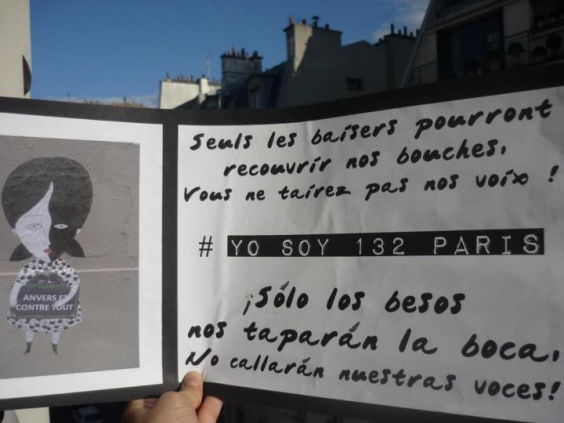 ANVERS ET
CONTRE TOUT
Seuls les baisers pourront
recouvrir nos bouches,
Vous ne tairez pas nos voix !
# YO SOY 132 PARIS
¡Sólo los besos
nos taparán la boca,
No callarán nuestras voces!